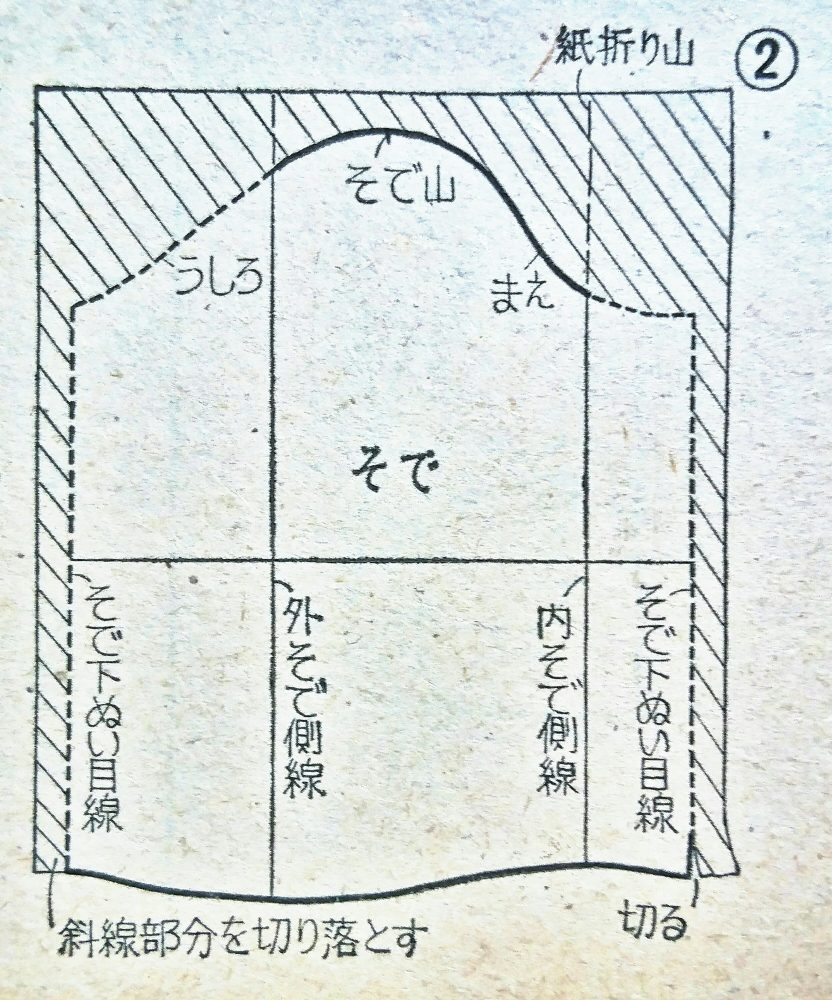 紙折り山
②
そで山
うしろ
まえ
そで
そで下ぬい目線
外そで側線
内そで側線
そで下ぬい目線
斜線部分を切り落とす
切る